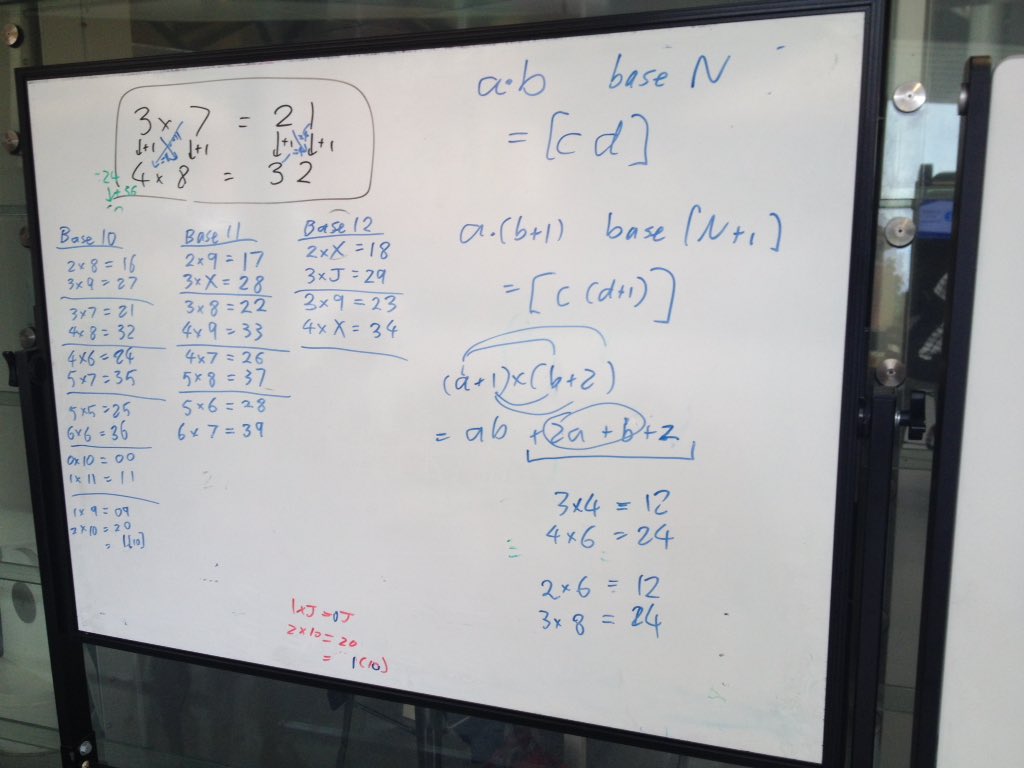 3 x 7 = 21
↓+1 ↓+1 ↓+1 ↓+1
4 x 8 = 32
-24
↓+36
Base 10
2 x 8 = 16
3 x 9 = 27
3 x 7 = 21
4 x 8 = 32
4 x 6 = 24
5 x 7 = 35
5 x 5 = 25
6 x 6 = 36
0 x 10 = 00
1 x 11 = 11
1 x 9 = 09
2 x 10 = 20
= 1[10]
Base 11
2 x 9 = 17
3 x X = 28
3 x 8 = 22
4 x 9 = 33
4 x 7 = 26
5 x 8 = 37
5 x 6 = 28
6 x 7 = 39
Base 12
2 x X = 18
3 x J = 29
3 x 9 = 23
4 x X = 34
1 x J = 0J
2 x 10 = 20
= 1(10)
a·b base N
= [c d]
a·(b+1) base [N+1]
= [c (d+1)]
(a+1)x(b+2)
= ab +2a + b+2
3 x 4 = 12
4 x 6 = 24
2 x 6 = 12
3 x 8 = 24